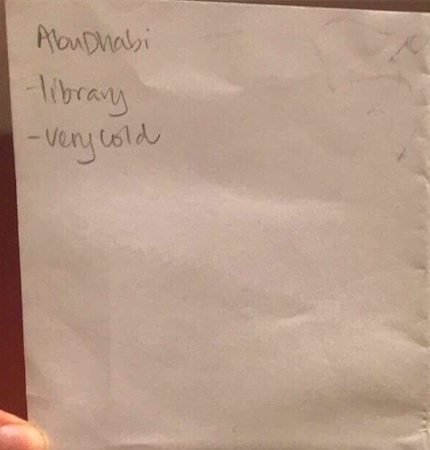 AbuDhabi
-library
-very cold